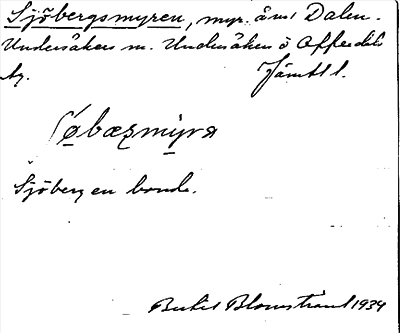 Sjöbergsmyren, myr. å ms Dalen.
Undersåkers sn. Undersåkers o Offerdals
tg. Jämtl l.
ʃøbæʂmyra
Sjöberg en bonde.
Bertil Blomstrand 1934